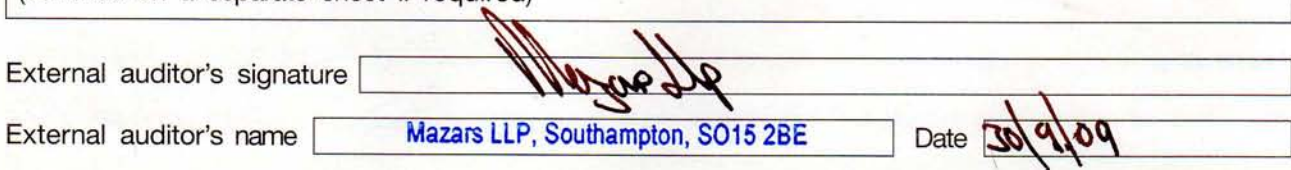 External auditor's signature Mazars LLP
External auditor's name Mazars LLP, Southampton, SO15 2BE Date 30/9/09